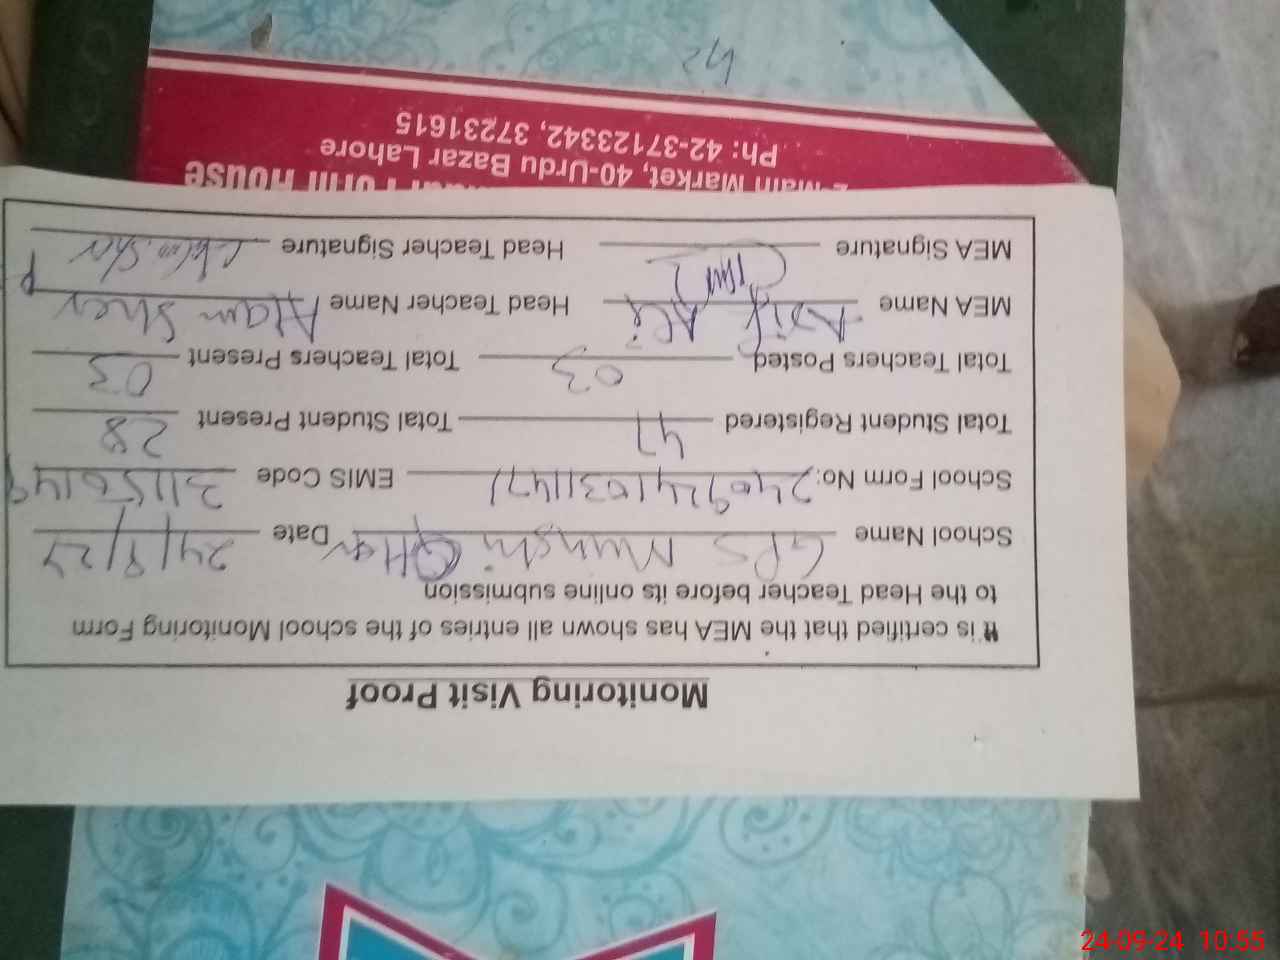 Monitoring Visit Proof
It is certified that the MEA has shown all entries of the school Monitoring Form
to the Head Teacher before its online submission
School Name GPS Munshi Date 24/9/24
School Form No: EMIS Code
Total Student Registered 47 Total Student Present 28
Total Teachers Posted 03 Total Teachers Present 03
MEA Name Asif Ali Head Teacher Name Alam Sher
MEA Signature Head Teacher Signature
Form House
Main Market, 40-Urdu Bazar Lahore
Ph: 42-37123342, 37231615
24-09-24 10:55